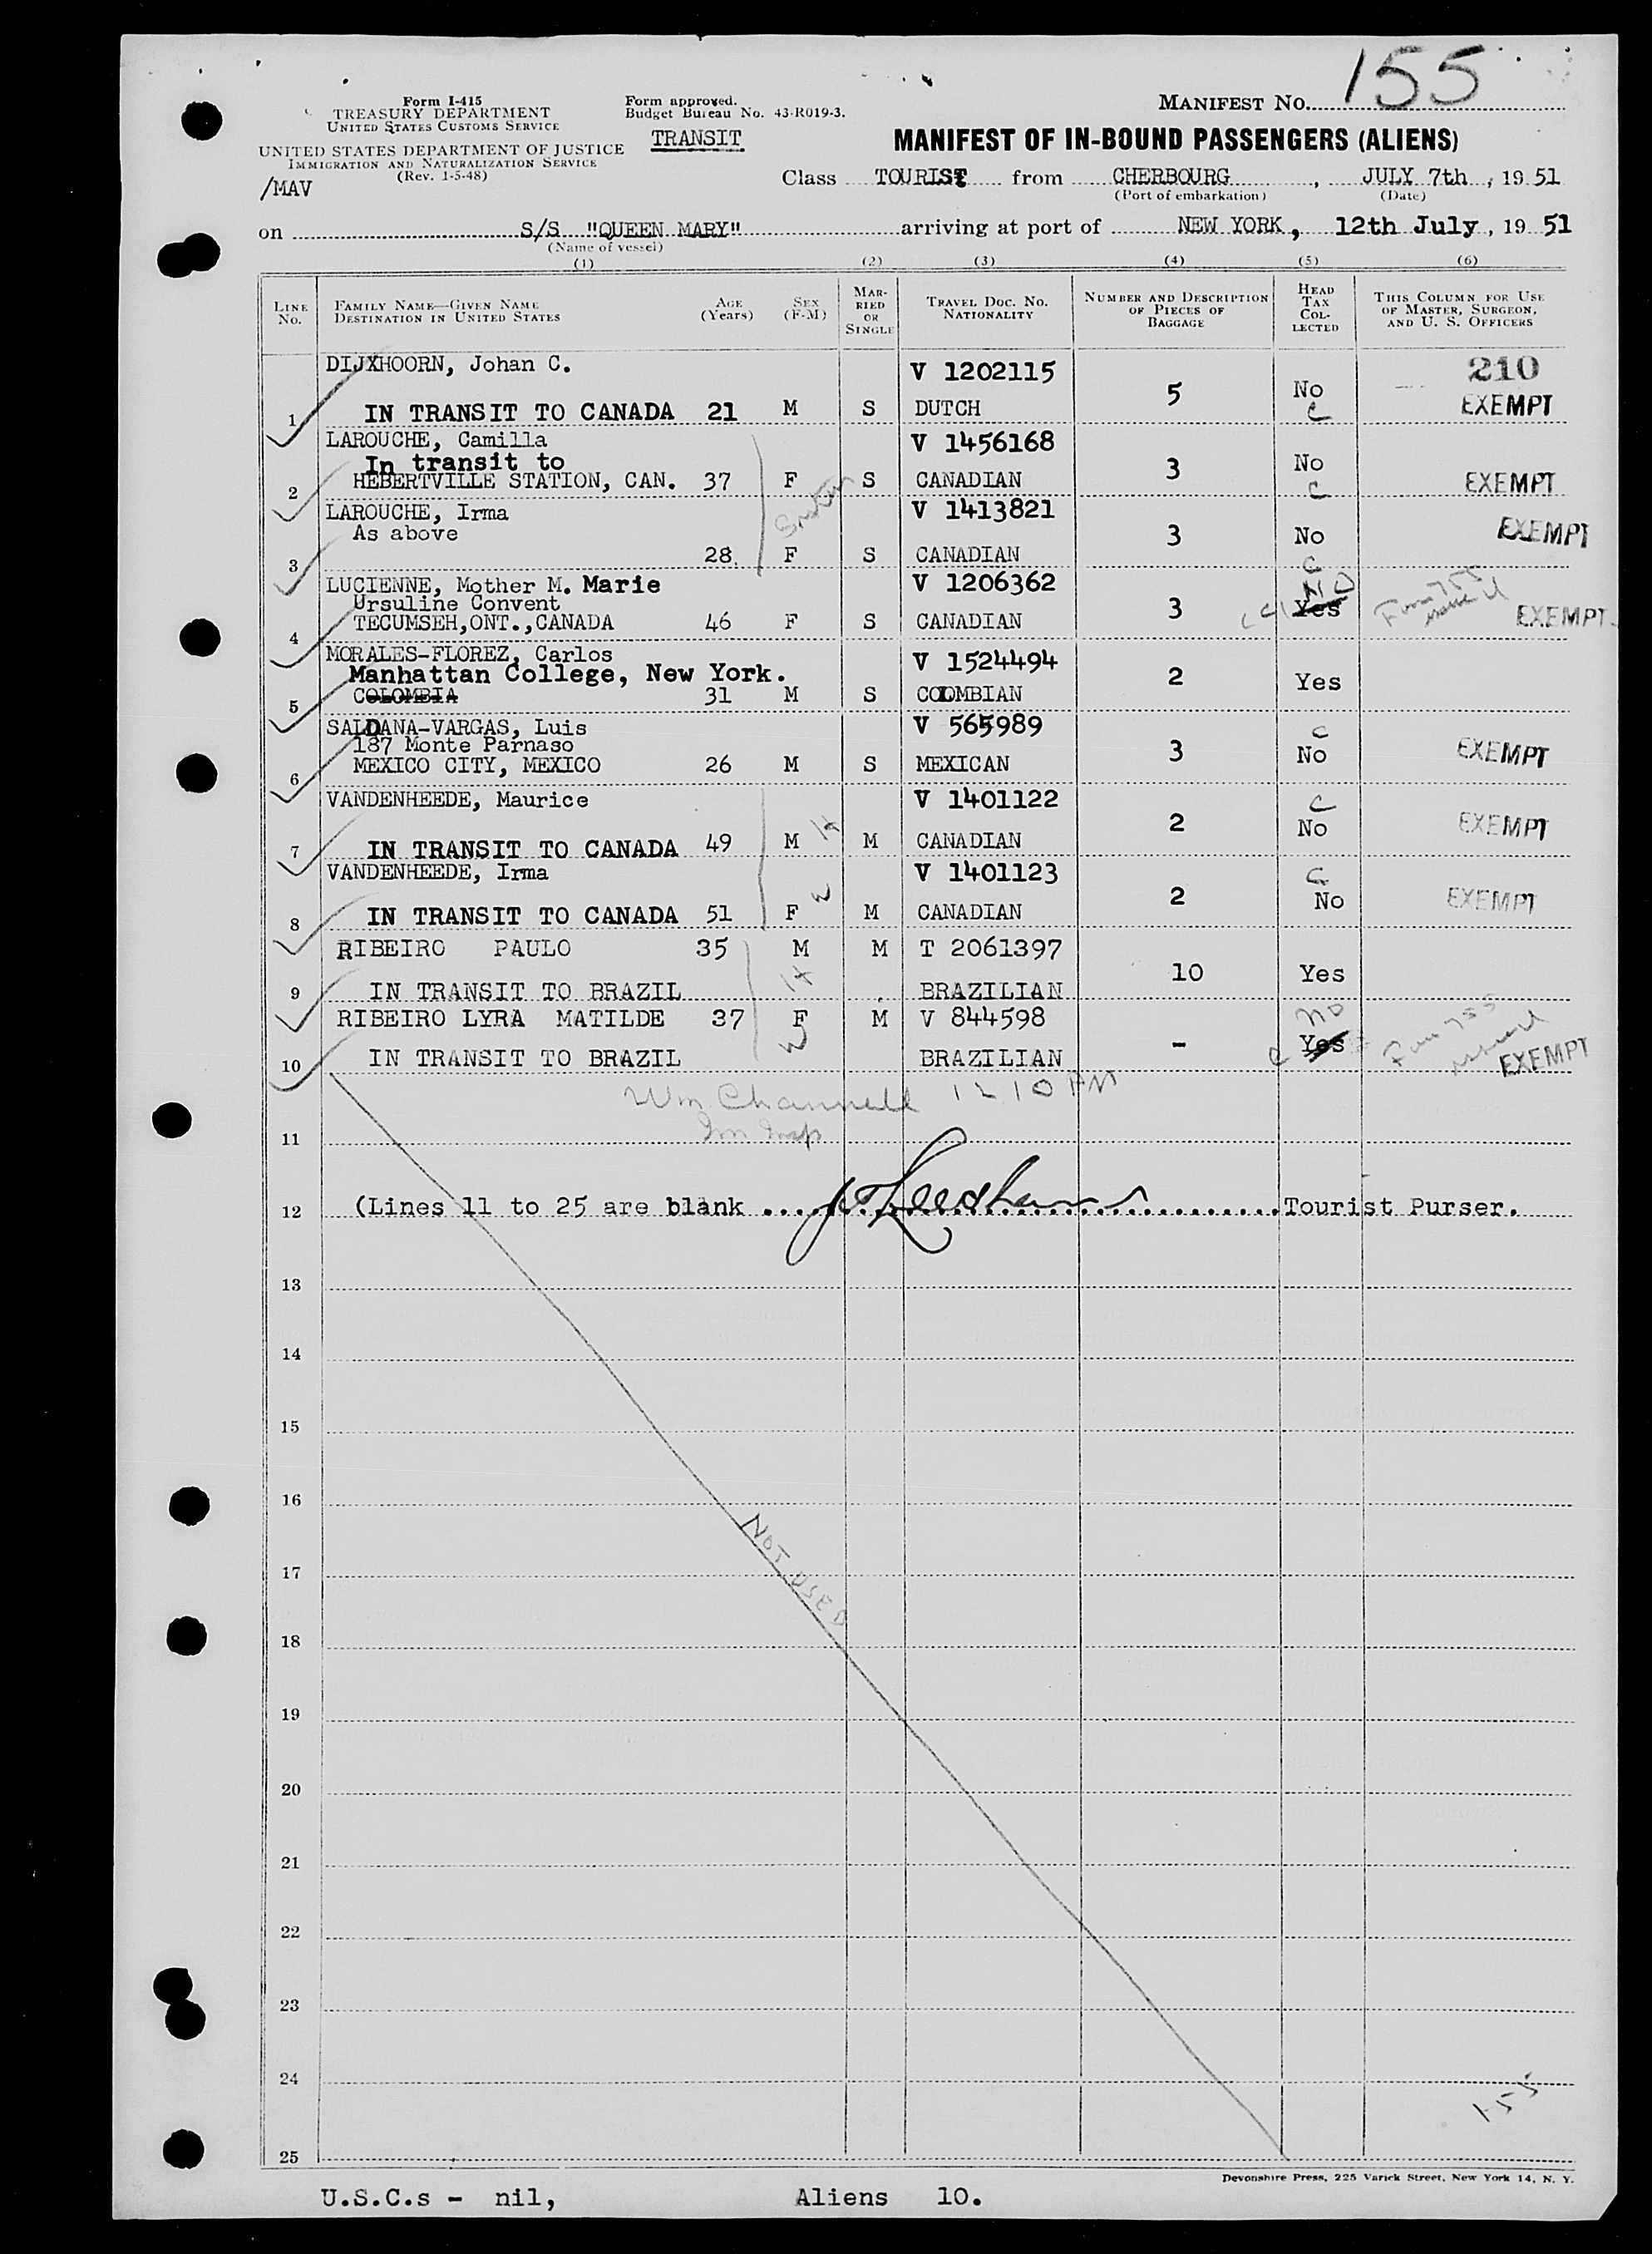 155
Form I-415
TREASURY DEPARTMENT
UNITED STATES CUSTOMS SERVICE
UNITED STATES DEPARTMENT OF JUSTICE
IMMIGRATION AND NATURALIZATION SERVICE
(Rev. 1-5-48)
/MAV
Form approved.
Budget Bureau No. 43-R019-3.
TRANSIT
MANIFEST NO.
MANIFEST OF IN-BOUND PASSENGERS (ALIENS)
Class TOURIST from CHERBOURG, JULY 7th, 1951
(Port of embarkation) (Date)
on S/S "QUEEN MARY" arriving at port of NEW YORK, 12th July, 19 51
(Name of vessel)
(1) (2) (3) (4) (5) (6)
LINE No. FAMILY NAME—GIVEN NAME DESTINATION IN UNITED STATES AGE (Years) SEX (F-M) MARRIED OR SINGLE TRAVEL DOC. NO. NATIONALITY NUMBER AND DESCRIPTION OF PIECES OF BAGGAGE HEAD TAX COLLECTED THIS COLUMN FOR USE OF MASTER, SURGEON, AND U. S. OFFICERS
DIJXHOORN, Johan C. V 1202115 210
1 IN TRANSIT TO CANADA 21 M S DUTCH 5 No C EXEMPT
LAROUCHE, Camilla V 1456168
In transit to
2 HEBERTVILLE STATION, CAN. 37 F S CANADIAN 3 No C EXEMPT
Sisters
LAROUCHE, Irma V 1413821
As above
3 28. F S CANADIAN 3 No C EXEMPT
LUCIENNE, Mother M. Marie V 1206362
Ursuline Convent NO Form 755 issued
4 TECUMSEH,ONT.,CANADA 46 F S CANADIAN 3 Yes EXEMPT
MORALES-FLOREZ, Carlos V 1524494
Manhattan College, New York.
5 COLOMBIA 31 M S COLOMBIAN 2 Yes
SALDANA-VARGAS, Luis V 565989
187 Monte Parnaso C
6 MEXICO CITY, MEXICO 26 M S MEXICAN 3 No EXEMPT
VANDENHEEDE, Maurice V 1401122 C
7 IN TRANSIT TO CANADA 49 M H M CANADIAN 2 No EXEMPT
VANDENHEEDE, Irma V 1401123 C
8 IN TRANSIT TO CANADA 51 F W M CANADIAN 2 No EXEMPT
RIBEIRO PAULO 35 M M T 2061397
9 IN TRANSIT TO BRAZIL H BRAZILIAN 10 Yes
RIBEIRO LYRA MATILDE 37 F M V 844598 no Form 755 issued
10 IN TRANSIT TO BRAZIL W BRAZILIAN - C Yes EXEMPT
Wm Channell 12 10 PM
Im Insp
11
12 (Lines 11 to 25 are blank Tourist Purser.
13
14
15
16
NOT USED
17
18
19
20
21
22
23
24
155
25
Devonshire Press, 225 Varick Street, New York 14, N. Y.
U.S.C.s - nil, Aliens 10.